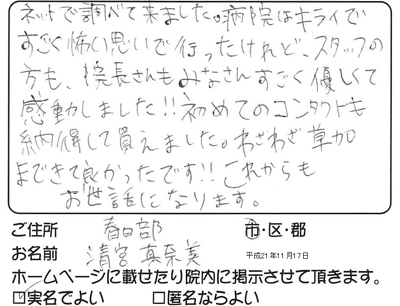 ネットで調べて来ました。病院はキライで
すごく怖い思いで行ったけれど、スタッフの
方も、院長さんもみなさんすごく優しくて
感動しました!!初めてのコンタクトも
納得して買えました。わざわざ草加
まできて良かったです!!これからも
お世話になります。
ご住所 春日部 市・区・郡
お名前 清宮 真奈美 平成21年11月17日
ホームページに載せたり院内に掲示させて頂きます。
□実名でよい □匿名ならよい